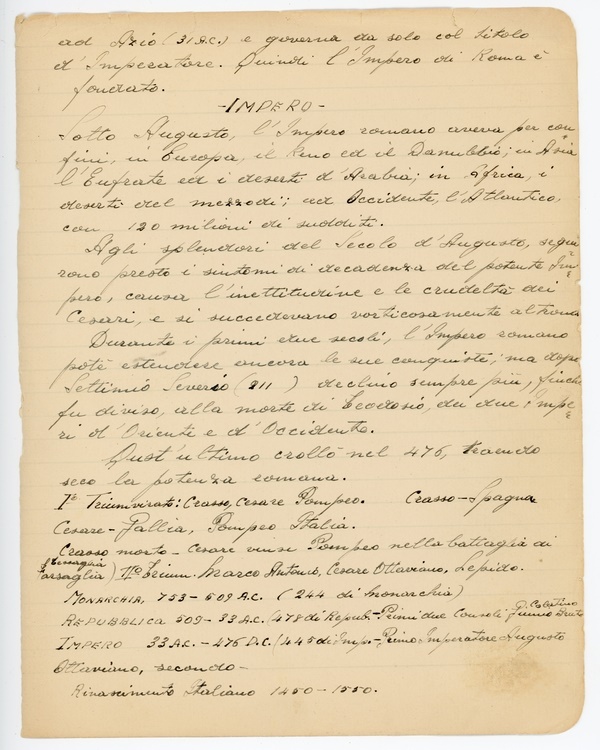 ad Azio (31 A.C.) e governa da solo col titolo
d'Imperatore. Quindi l'Impero di Roma è
fondato.
-IMPERO-
Sotto Augusto, l'Impero romano aveva per con
fini, in Europa, il Reno ed il Danubbio; in Asia
l'Eufrate ed i deserti d'Arabia; in Africa, i
deserti del mezzodi; ad Occidente, l'Atlantico,
con 120 milioni di sudditi.
Agli splendori del Secolo d'Augusto, segui
rono presto i sintomi di decadenza del potente Im=
pero, causa l'inettitudine e le crudeltà dei
Cesari, e si succedevano vorticosamente al trono
Durante i primi due secoli, l'Impero romano
potè estendere ancora le sue conquiste; ma dopo
Settimio Severio (211 ) declino sempre più, finchè
fu diviso, alla morte di Teodosio, dei due Impe=
ri d'Oriente e d'Occidente.
Quest'ultimo crollò nel 476, traendo
seco la potenza romana.
I° Triumvirato: Crasso, Cesare Pompeo. Crasso-Spagna
Cesare-Gallia, Pompeo Italia.
Crasso morto - Cesare vinse Pompeo nella battaglia di
Farsaglia) II° Trium. Marco Antonio, Cesare Ottaviano, Lepido.
MONARCHIA, 753-509 A.C. (244 di monarchia)
REPUBBLICA 509-33 A.C. (478 di Repub.- Primi due Consoli Giunio Bruto
IMPERO 33 A.C.-476 D.C. (445 di Imp.- Primo, Imperatore Augusto
Ottaviano, secondo-
Rinascimento Italiano 1450-1550.